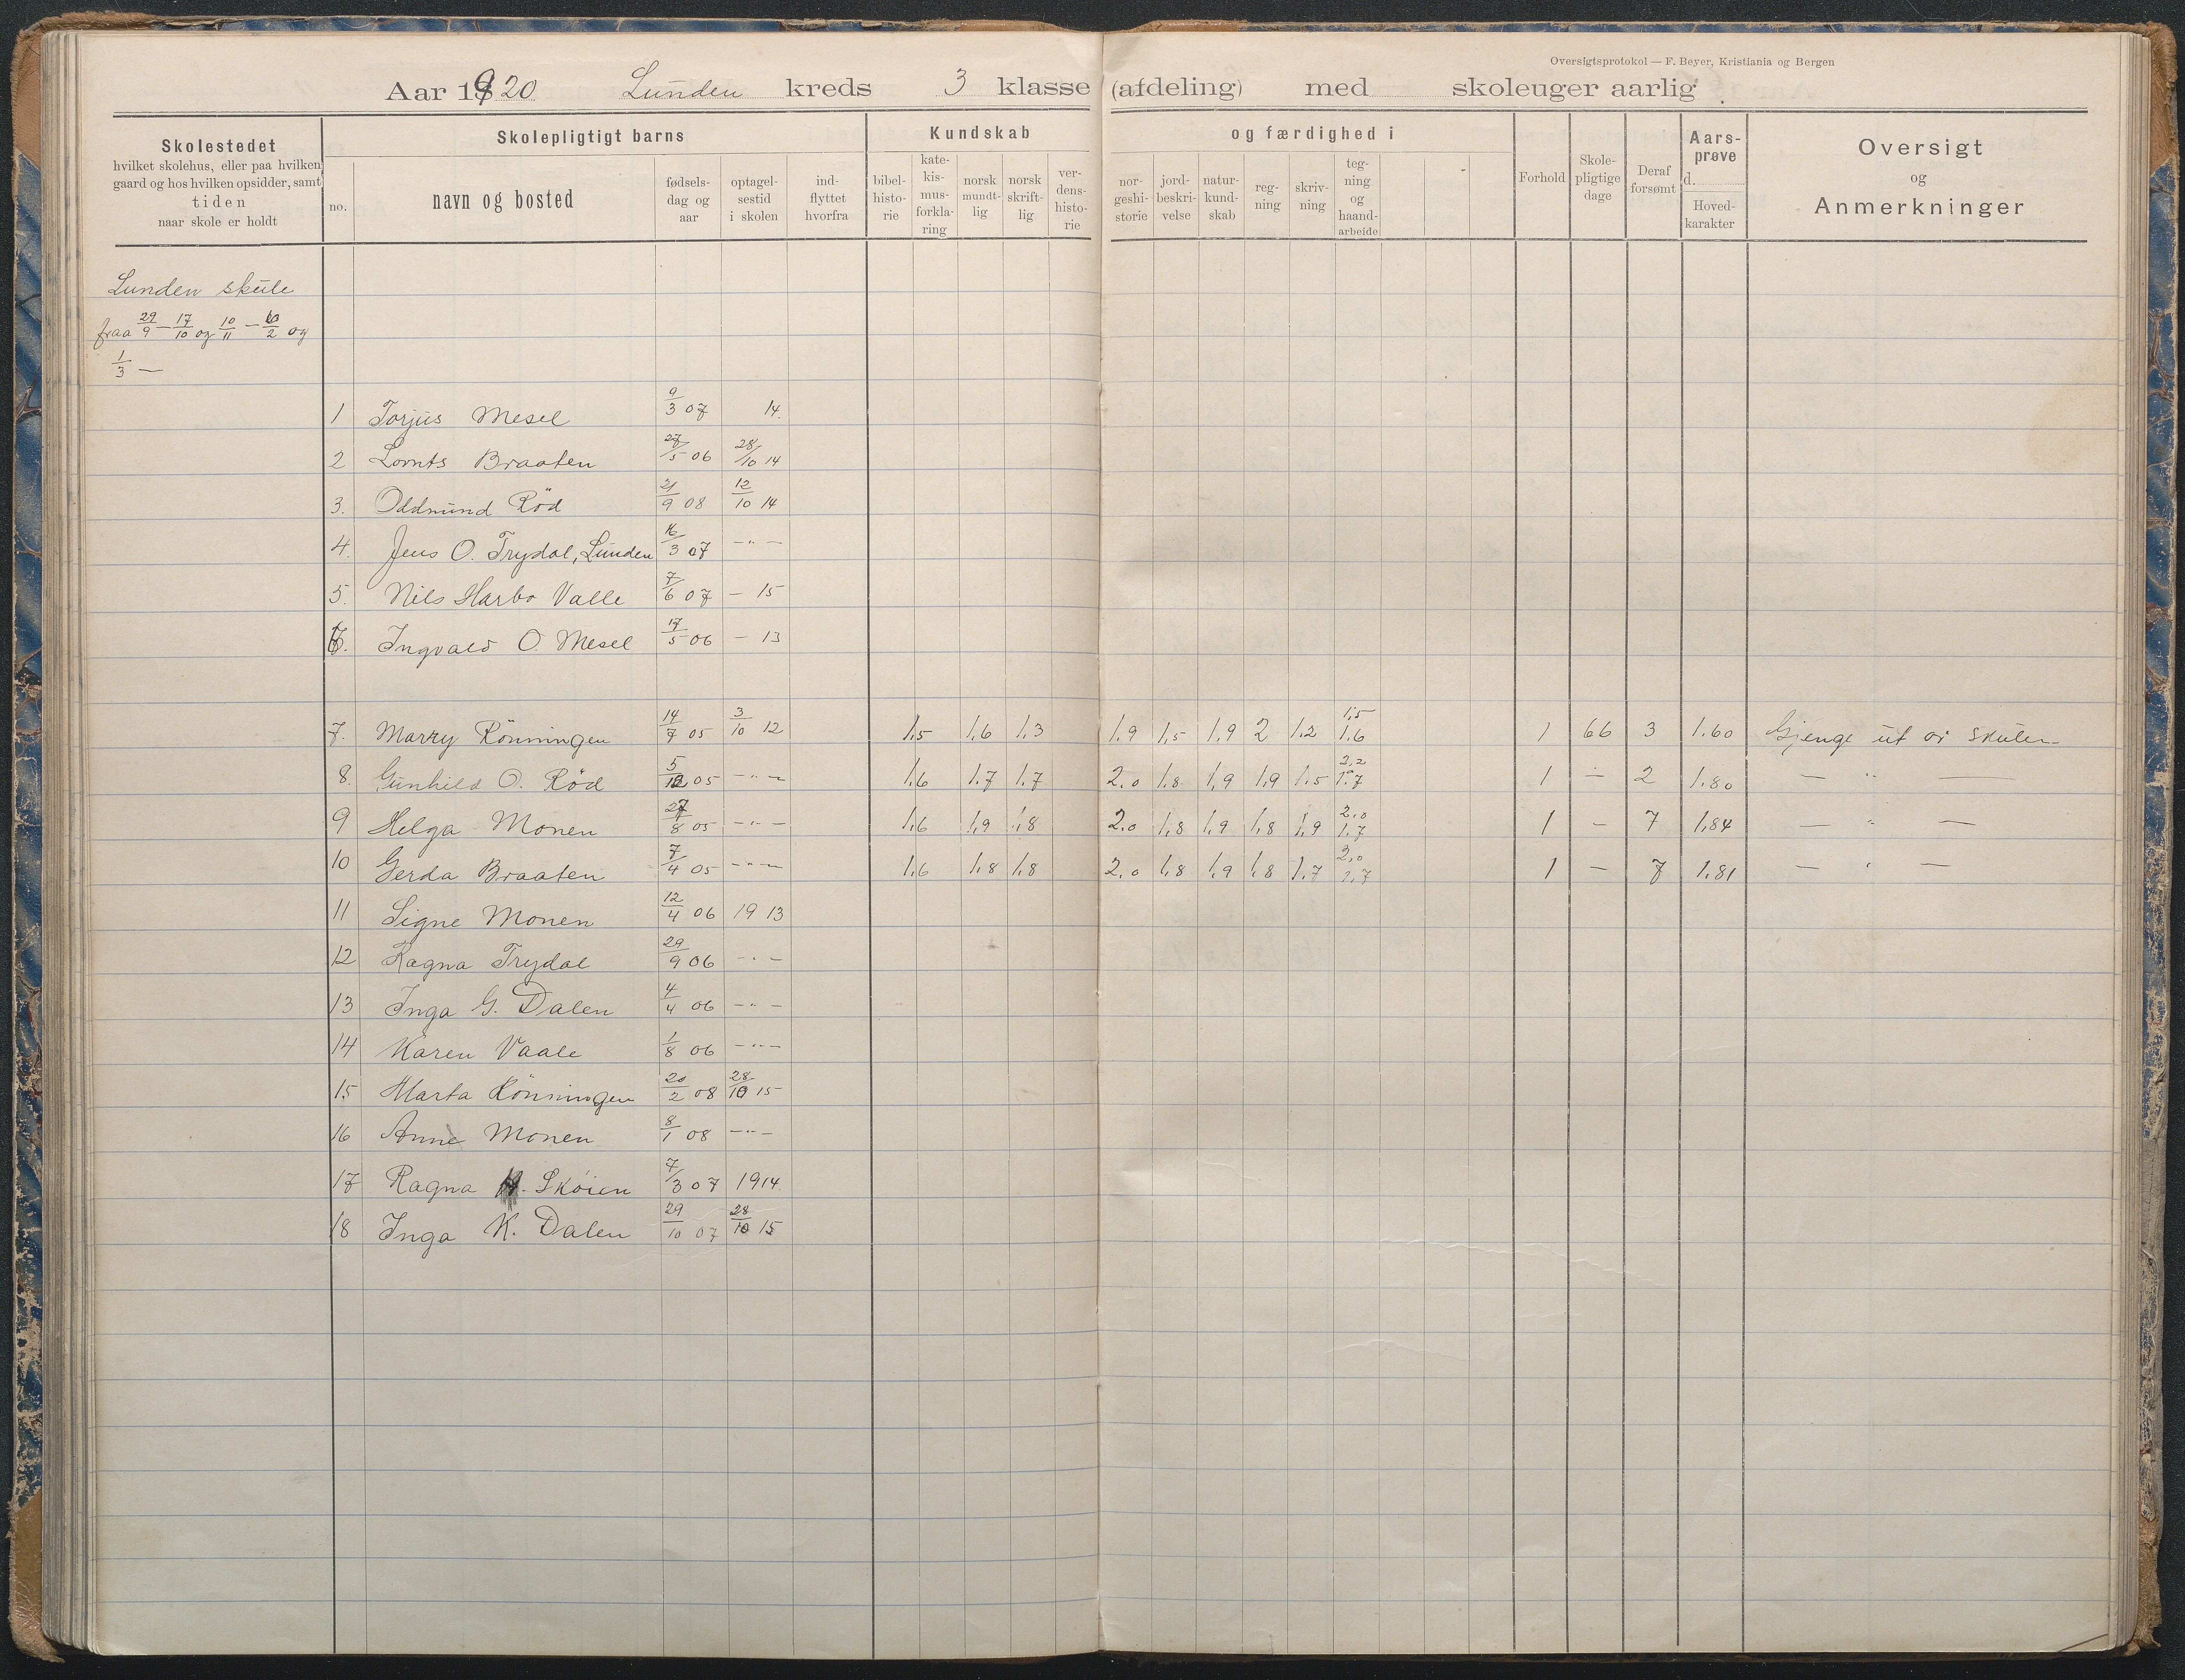 Oversigtsprotokol — F. Beyer, Kristiania og Bergen
Aar 1920 Lunden kreds 3 klasse (afdeling) med skoleuger aarlig
Skolestedet
hvilket skolehus, eller paa hvilken
gaard og hos hvilken opsidder, samt
tiden
naar skole er holdt
Skolepligtigt barns
no.
navn og bosted
fødsels-
dag og
aar
optagel-
sestid
i skolen
ind-
flyttet
hvorfra
Kundskab
bibel-
histo-
rie
kate-
kis-
mus-
forkla-
ring
norsk
mundt-
lig
norsk
skrift-
lig
ver-
dens-
histo-
rie
og færdighed i
nor-
geshi-
storie
jord-
beskri-
velse
natur-
kund-
skab
reg-
ning
skriv-
ning
teg-
ning
og
haand-
arbeide
Forhold
Skole-
pligtige
dage
Deraf
forsømt
Aars-
prøve
d.
Hoved-
karakter
Oversigt
og
Anmerkninger
Lunden skule
fraa 29/9 — 17/10 og 10/11 — /2 og
1/3 —
1 Torjus Mesel 9/3 07 14.
2 Lornts Braaten 27/5 06 28/10 14
3. Oddmund Röd 21/9 08 12/10 14
4. Jens O. Trydal, Lunden 16/3 07 — " —
5. Nils Harbo Valle 7/6 07 — 15
6. Ingvald O. Mesel 17/5 06 — 13
7. Marry Rönningen 14/7 05 3/10 12 1,5 1,6 1,3 1,9 1,5 1,9 2 1,2 1,5 1,6 1 66 3 1.60 Gjenge ut or skulen
8. Gunhild O. Röd 5/12 05 — " — 1,6 1,7 1,7 2.0 1,8 1,9 1,9 1,5 2,2 1,7 1 — 2 1.80 — " —
9 Helga Monen 27/8 05 — " — 1,6 1,9 1,8 2.0 1,8 1,9 1,8 1,9 2,0 1,7 1 — 7 1,84 — " —
10 Gerda Braaten 7/4 05 — " — 1,6 1,8 1,8 2.0 1,8 1,9 1,8 1,7 2,0 1,7 1 — 7 1.81 — " —
11 Signe Monen 12/4 06 19 13
12 Ragna Trydal 29/9 06 — " —
13 Inga G. Dalen 4/4 06 — " —
14 Karen Vaale 1/8 06 — " —
15 Marta Rönningen 20/2 08 28/10 15
16 Anne Monen 8/1 08 — " —
17 Ragna H. Sköien 7/3 07 1914.
18 Inga K. Dalen 29/10 07 28/10 15